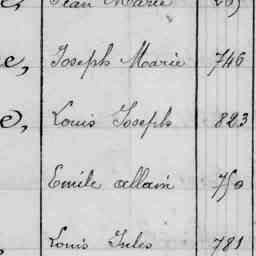 Jean Marie
e, Joseph Marie 746
e, Louis Joseph 823
Emile allain 750
Louis Jules 781